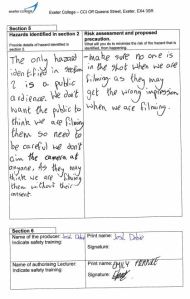 exeter college
Exeter College – CCI Off Queens Street, Exeter, EX4 3SR
Section 5
Hazards identified in section 2
Provide details of hazard identified in section 2
Risk assessment and proposed precaution.
What will you do to minimise the risk of the hazard that is identified, from happening.
The only hazard
identified in section
2 is a public
audience. We don't
want the public to
think we are filming
them so need to
be careful we don't
aim the camera at
anyone. As they may
think we are filming
them without their
consent.
- make sure no one is
in the shot when we are
filming as they may
get the wrong impression
when we are filming.
Section 6
Name of the producer:
Indicate safety training:
Print name:
Signature:
Name of authorising Lecturer:
Indicate safety training:
Print name: EMILY
Signature: